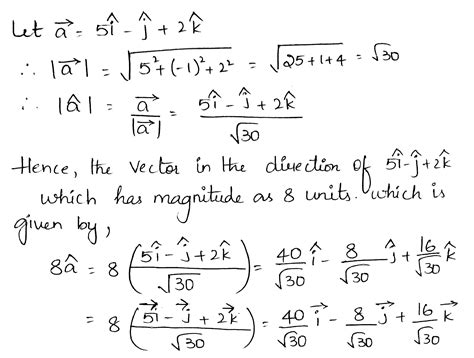 Let a⃗ = 5î - ĵ + 2k̂
∴ |a⃗| = √(5² + (-1)² + 2²) = √(25 + 1 + 4) = √30
∴ |â| = a⃗/|a⃗| = (5î - ĵ + 2k̂)/√30
Hence, the vector in the direction of 5î - ĵ + 2k̂
which has magnitude as 8 units. which is
given by,
8â = 8((5î - ĵ + 2k̂)/√30) = 40/√30 î - 8/√30 ĵ + 16/√30 k̂
= 8((5i⃗ - j⃗ + 2k⃗)/√30) = 40/√30 i⃗ - 8/√30 j⃗ + 16/√30 k⃗